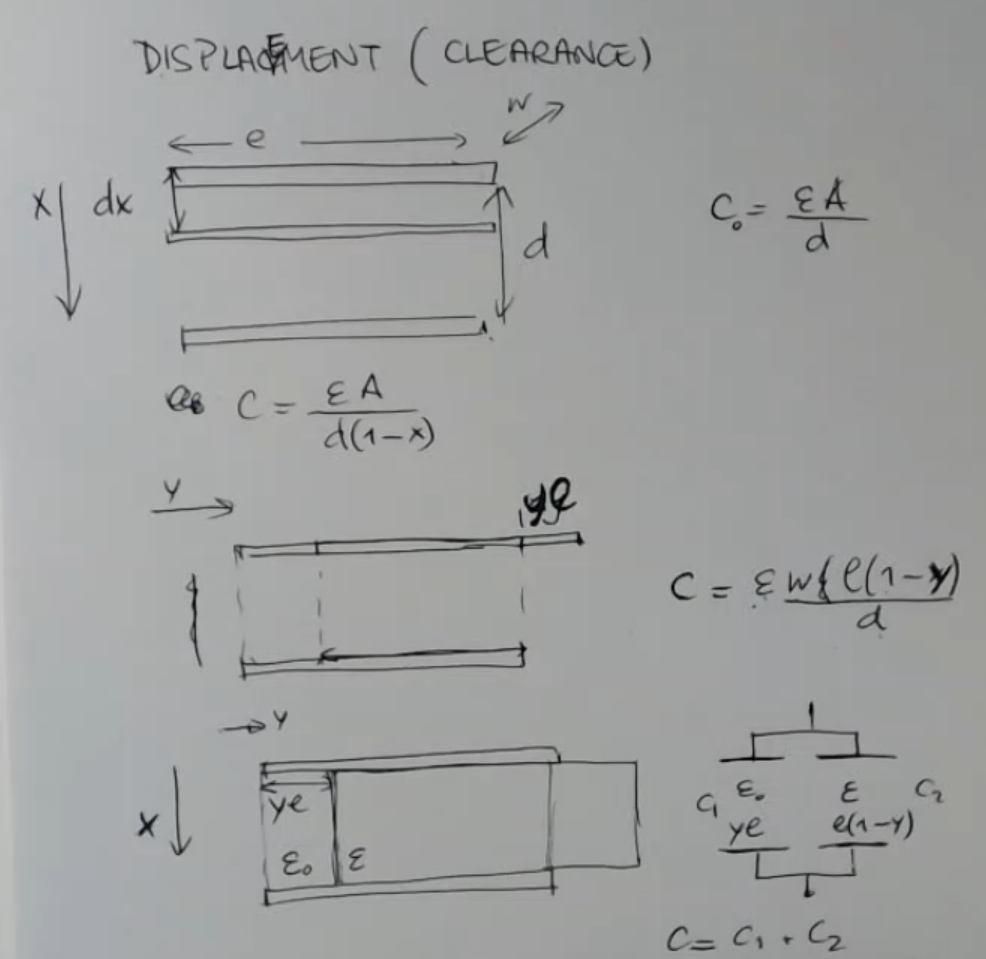 DISPLACEMENT (CLEARANCE)
w
e
x dx
d
C₀ = εA / d
C = εA / d(1-x)
y
yℓ
C = ε w{ℓ(1-y) / d
y
x
yℓ
ε₀ ε
C₁ ε₀ ε C₂
yℓ ℓ(1-y)
C = C₁ + C₂